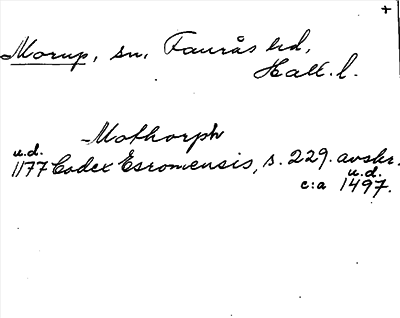 +
Morup, sn, Faurås hd,
Hall. l.
Mothorph
u.d.
1177 Codex Esromensis, s. 229. avskr.
u.d.
c:a 1497.